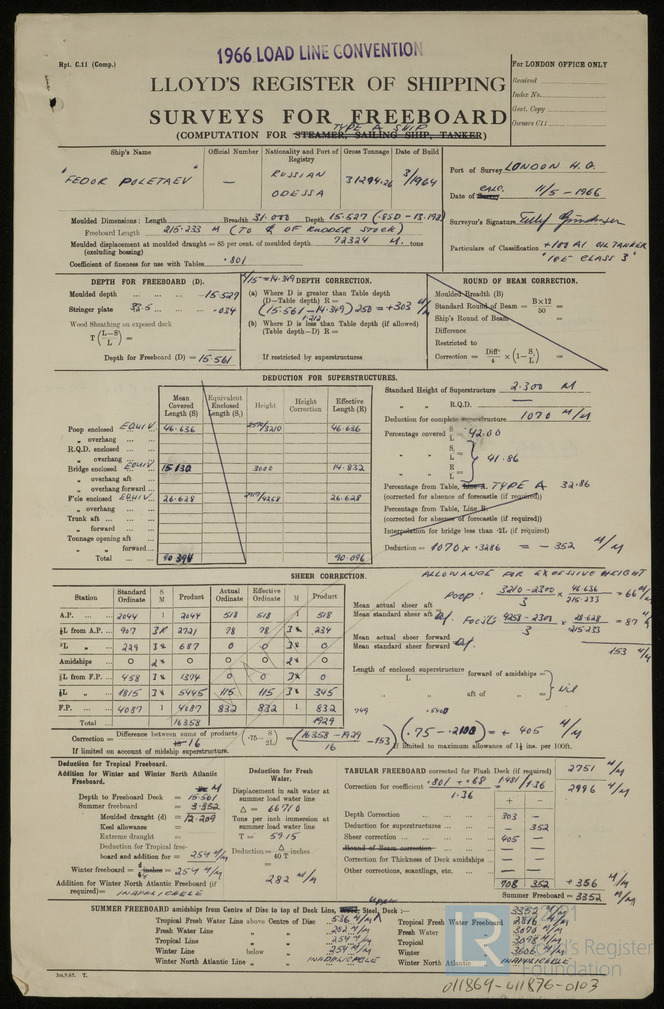 1966 LOAD LINE CONVENTION
Rpt. C.11 (Comp.)
For LONDON OFFICE ONLY
LLOYD'S REGISTER OF SHIPPING
Received
Index No.
SURVEYS FOR FREEBOARD
Govt. Copy
TYPE A SHIP
Owners C11
(COMPUTATION FOR STEAMER, SAILING SHIP, TANKER)
Ship's Name Official Number Nationality and Port of Registry Gross Tonnage Date of Build
"FEDOR POLETAEV" — RUSSIAN ODESSA 31294.26 3/1964
Port of Survey LONDON H.O.
Date of Survey CALC. 11/5-1966
Moulded Dimensions: Length Breadth 31.000 Depth 15.527 (.85D = 13.198)
Surveyor's Signature
Freeboard Length 215.233 M (TO ℄ OF RUDDER STOCK)
Moulded displacement at moulded draught = 85 per cent. of moulded depth 72324 M. tons
(excluding bossing)
Particulars of Classification +100 A1 OIL TANKER
"ICE CLASS 3"
Coefficient of fineness for use with Tables .801
DEPTH FOR FREEBOARD (D).
Moulded depth 15.527
Stringer plate 33.5 .034
Wood Sheathing on exposed deck
T (L-S/L) =
Depth for Freeboard (D) = 15.561
L/15 = 14.349 DEPTH CORRECTION.
(a) Where D is greater than Table depth
(D—Table depth) R =
(15.561 - 14.349) 250 = +303 M/M
1.212
(b) Where D is less than Table depth (if allowed)
(Table depth—D) R =
If restricted by superstructures
ROUND OF BEAM CORRECTION.
Moulded Breadth (B)
Standard Round of Beam = B×12/50 =
Ship's Round of Beam =
Difference
Restricted to
Correction = Diff/4 × (1-S₁/L) =
DEDUCTION FOR SUPERSTRUCTURES.
Mean Covered Length (S) Equivalent Enclosed Length (S₁) Height Height Correction Effective Length (E)
Poop enclosed EQUIV. 46.636 46.636
" overhang
R.Q.D. enclosed
" overhang
Bridge enclosed EQUIV 15.130 3000 14.832
" overhang aft
" overhang forward
F'cle enclosed EQUIV. 26.628 26.628
" overhang
Trunk aft
" forward
Tonnage opening aft
" " forward
Total 90.394 90.096
Standard Height of Superstructure 2.300 M
" " R.Q.D. —
Deduction for complete superstructure 1070 M/M
Percentage covered S/L = 42.00
" " S₁/L
" " E/L } 41.86
Percentage from Table, Line A. TYPE A 32.86
(corrected for absence of forecastle (if required))
Percentage from Table, Line B.
(corrected for absence of forecastle (if required))
Interpolation for bridge less than ·2L (if required)
Deduction = 1070 × .3286 = - 352 M/M
SHEER CORRECTION.
Station Standard Ordinate S M Product Actual Ordinate Effective Ordinate M Product
A.P. 2044 1 2044 518 518 1 518
⅙L from A.P. 907 3 2721 78 78 3 234
⅓L " 229 3 687 0 0 3 0
Amidships 0 2 0 0 0 2 0
⅓L from F.P. 458 3 1374 0 0 3 0
⅙L " 1815 3 5445 115 115 3 345
F.P. 4087 1 4087 832 832 1 832
Total 16358 1929
ALLOWANCE FOR EXCESSIVE HEIGHT
POOP: 3210-2300/3 × 46.636/215.233 = 66 M/M
Mean actual sheer aft
Mean standard sheer aft = Def.
FOC'S'L 4258-2300/3 × 28.628/215.233 = 87 M/M
Mean actual sheer forward
Mean standard sheer forward = Def.
153 M/M
Length of enclosed superstructure/L forward of amidships =
" aft of " = } Nil
Correction = Difference between sums of products/16 (·75 - S/2L) = (16358-1929/16 - 153) (.75 - .2100) = + 405 M/M
If limited on account of midship superstructure.
If limited to maximum allowance of 1½ ins. per 100ft.
Deduction for Tropical Freeboard.
Addition for Winter and Winter North Atlantic Freeboard.
M
Depth to Freeboard Deck = 15.561
Summer freeboard = 3.352
Moulded draught (d) = 12.209
Keel allowance =
Extreme draught =
Deduction for Tropical freeboard and addition for = 254 M/M
Winter freeboard = = 254 M/M
Addition for Winter North Atlantic Freeboard (if required) = INAPPLICABLE
Deduction for Fresh Water.
Displacement in salt water at summer load water line
Δ = 66710
Tons per inch immersion at summer load water line
T = 59.15
Deduction = Δ/40 T
=
282 M/M
TABULAR FREEBOARD corrected for Flush Deck (if required) 2751 M/M
Correction for coefficient .801 + .68/1.36 1.481/1.36 2996 M/M
+ —
Depth Correction 303 —
Deduction for superstructures — 352
Sheer correction 405 —
Round of Beam correction — —
Correction for Thickness of Deck amidships — —
Other corrections, scantlings, etc. — —
708 352 + 356 M/M
Summer Freeboard = 3352 M/M
Upper
SUMMER FREEBOARD amidships from Centre of Disc to top of Deck Line, Wood, Steel, Deck :— 3352 M/M
Tropical Fresh Water Line above Centre of Disc 536 M/M Tropical Fresh Water Freeboard 2816 M/M
Fresh Water Line " " 282 M/M Fresh Water " 3070 M/M
Tropical Line " " 254 M/M Tropical " 3098 M/M
Winter Line below " 254 M/M Winter " 3606 M/M
Winter North Atlantic Line " " INAPPLICABLE Winter North Atlantic " INAPPLICABLE
LR Lloyd's Register
Foundation
3m,9,65. T.
011869-011876-0103